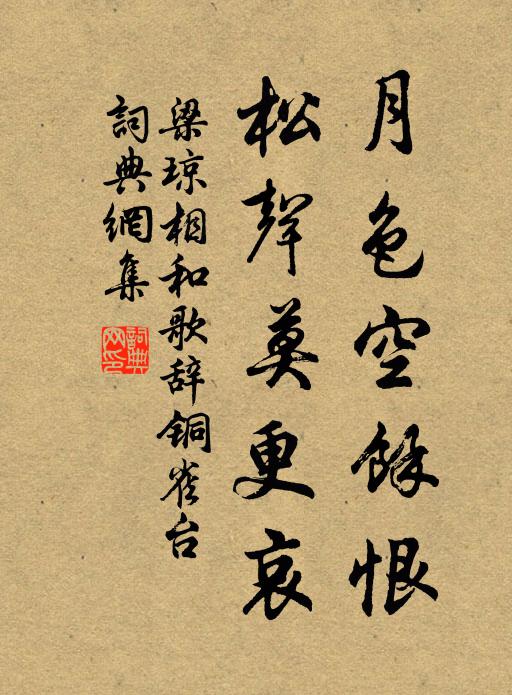 月色空餘恨
松聲莫更哀
梁琼相和歌辞铜雀台
詞典網集
詞典網印